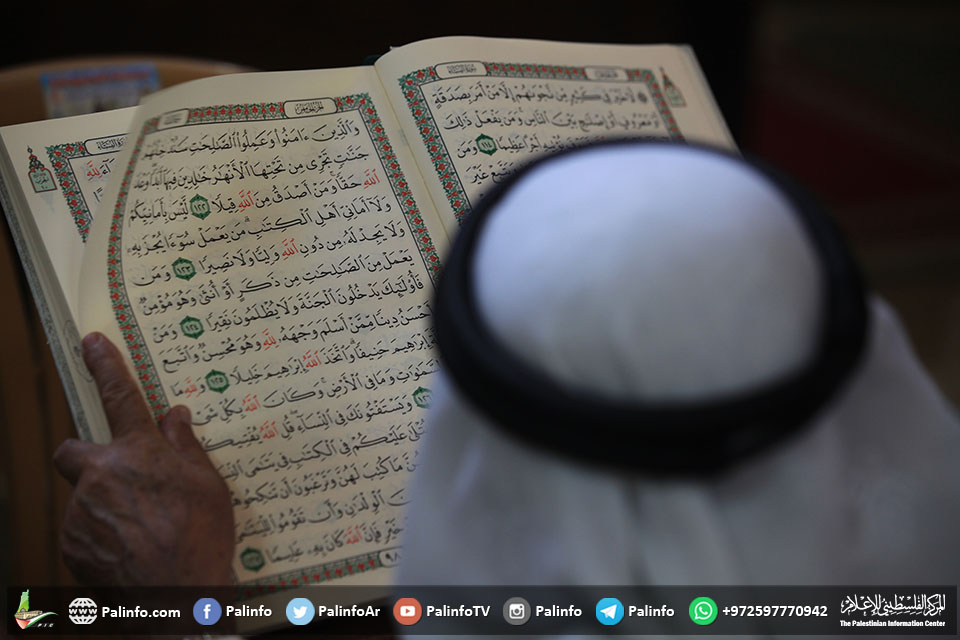 لَّا خَيْرَ فِي كَثِيرٍ مِّن نَّجْوَىٰهُمْ إِلَّا مَنْ أَمَرَ بِصَدَقَةٍ
أَوْ مَعْرُوفٍ أَوْ إِصْلَٰحٍ بَيْنَ ٱلنَّاسِ وَمَن يَفْعَلْ ذَٰلِكَ
نُؤْتِيهِ أَجْرًا عَظِيمًا ١١٤ وَمَن
وَيَتَّبِعْ غَيْرَ
وَٱلَّذِينَ ءَامَنُوا۟ وَعَمِلُوا۟ ٱلصَّٰلِحَٰتِ سَنُدْخِلُهُمْ
جَنَّٰتٍ تَجْرِي مِن تَحْتِهَا ٱلْأَنْهَٰرُ خَٰلِدِينَ فِيهَآ أَبَدًا وَعْدَ
ٱللَّهِ حَقًّا وَمَنْ أَصْدَقُ مِنَ ٱللَّهِ قِيلًا ١٢٢ لَّيْسَ بِأَمَانِيِّكُمْ
وَلَآ أَمَانِيِّ أَهْلِ ٱلْكِتَٰبِ مَن يَعْمَلْ سُوٓءًا يُجْزَ بِهِۦ
وَلَا يَجِدْ لَهُۥ مِن دُونِ ٱللَّهِ وَلِيًّا وَلَا نَصِيرًا ١٢٣ وَمَن
يَعْمَلْ مِنَ ٱلصَّٰلِحَٰتِ مِن ذَكَرٍ أَوْ أُنثَىٰ وَهُوَ مُؤْمِنٌ
فَأُو۟لَٰٓئِكَ يَدْخُلُونَ ٱلْجَنَّةَ وَلَا يُظْلَمُونَ نَقِيرًا ١٢٤ وَمَنْ
أَحْسَنُ دِينًا مِّمَّنْ أَسْلَمَ وَجْهَهُۥ لِلَّهِ وَهُوَ مُحْسِنٌ وَٱتَّبَعَ
إِبْرَٰهِيمَ حَنِيفًا وَٱتَّخَذَ ٱللَّهُ إِبْرَٰهِيمَ خَلِيلًا ١٢٥ وَلِلَّهِ مَا
ٱلسَّمَٰوَٰتِ وَمَا فِي ٱلْأَرْضِ وَكَانَ ٱللَّهُ بِكُلِّ شَيْءٍ
١٢٦ وَيَسْتَفْتُونَكَ فِي ٱلنِّسَآءِ قُلِ ٱللَّهُ يُفْتِيكُمْ
يُتْلَىٰ عَلَيْكُمْ فِي ٱلْكِتَٰبِ فِي يَتَٰمَى ٱلنِّسَآءِ
مَا كُتِبَ لَهُنَّ وَتَرْغَبُونَ أَن تَنكِحُوهُنَّ
مِنَ ٱلْوِلْدَٰنِ وَأَن تَقُومُوا۟ لِلْيَتَٰمَىٰ
خَيْرٍ فَإِنَّ ٱللَّهَ كَانَ بِهِۦ عَلِيمًا ١٢٧
٩٨
PIC
Palinfo.com
Palinfo
PalinfoAr
PalinfoTV
Palinfo
Palinfo
+972597770942
المركز الفلسطيني للإعلام
The Palestinian Information Center